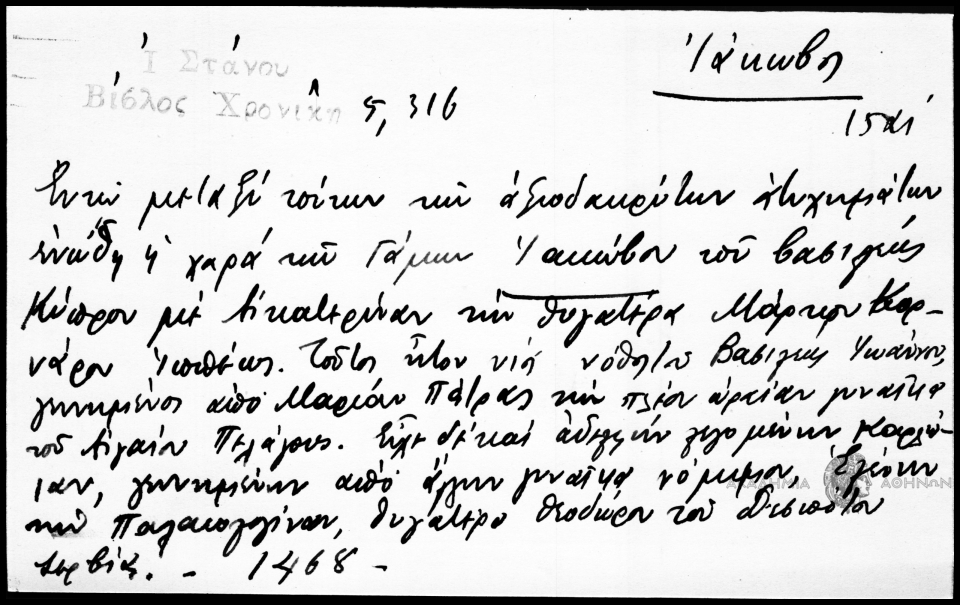 Ἰ Στάνου
Βίβλος Χρονικὴ ς, 316
Ἰάκωβος
15 αἰ
Ἐν τῷ μεταξὺ τούτων τῶν ἀξιοδακρύτων ἀτυχημάτων
ἡ χαρά τῶν Γάμων Ἰακώβου τοῦ Βασιλέως
Κύπρου μὲ Αἰκατερίναν τὴν θυγατέρα Μάρκου Κορ-
νάρου Τοῦτος ἦτον υἱὸς νόθος τοῦ Βασιλέως Ἰωάννου,
γεννημένος ἀπὸ Μαρίαν Πάτρας τὴν πλέον ὡραίαν γυναῖκα
τοῦ Αἰγαίου Πελάγους. Εἶχε δὲ καὶ ἀδελφὴν λεγομένην Καρλό-
ταν, γεννημένην ἀπὸ ἄλλην γυναῖκα νόμιμον, Ἑλένην
τὴν Παλαιολογίναν, θυγατέρα Θεοδώρου τοῦ Δεσπότου
Σερβίας. - 1468 -
ΑΚΑΔΗΜΙΑ ΑΘΗΝΩΝ